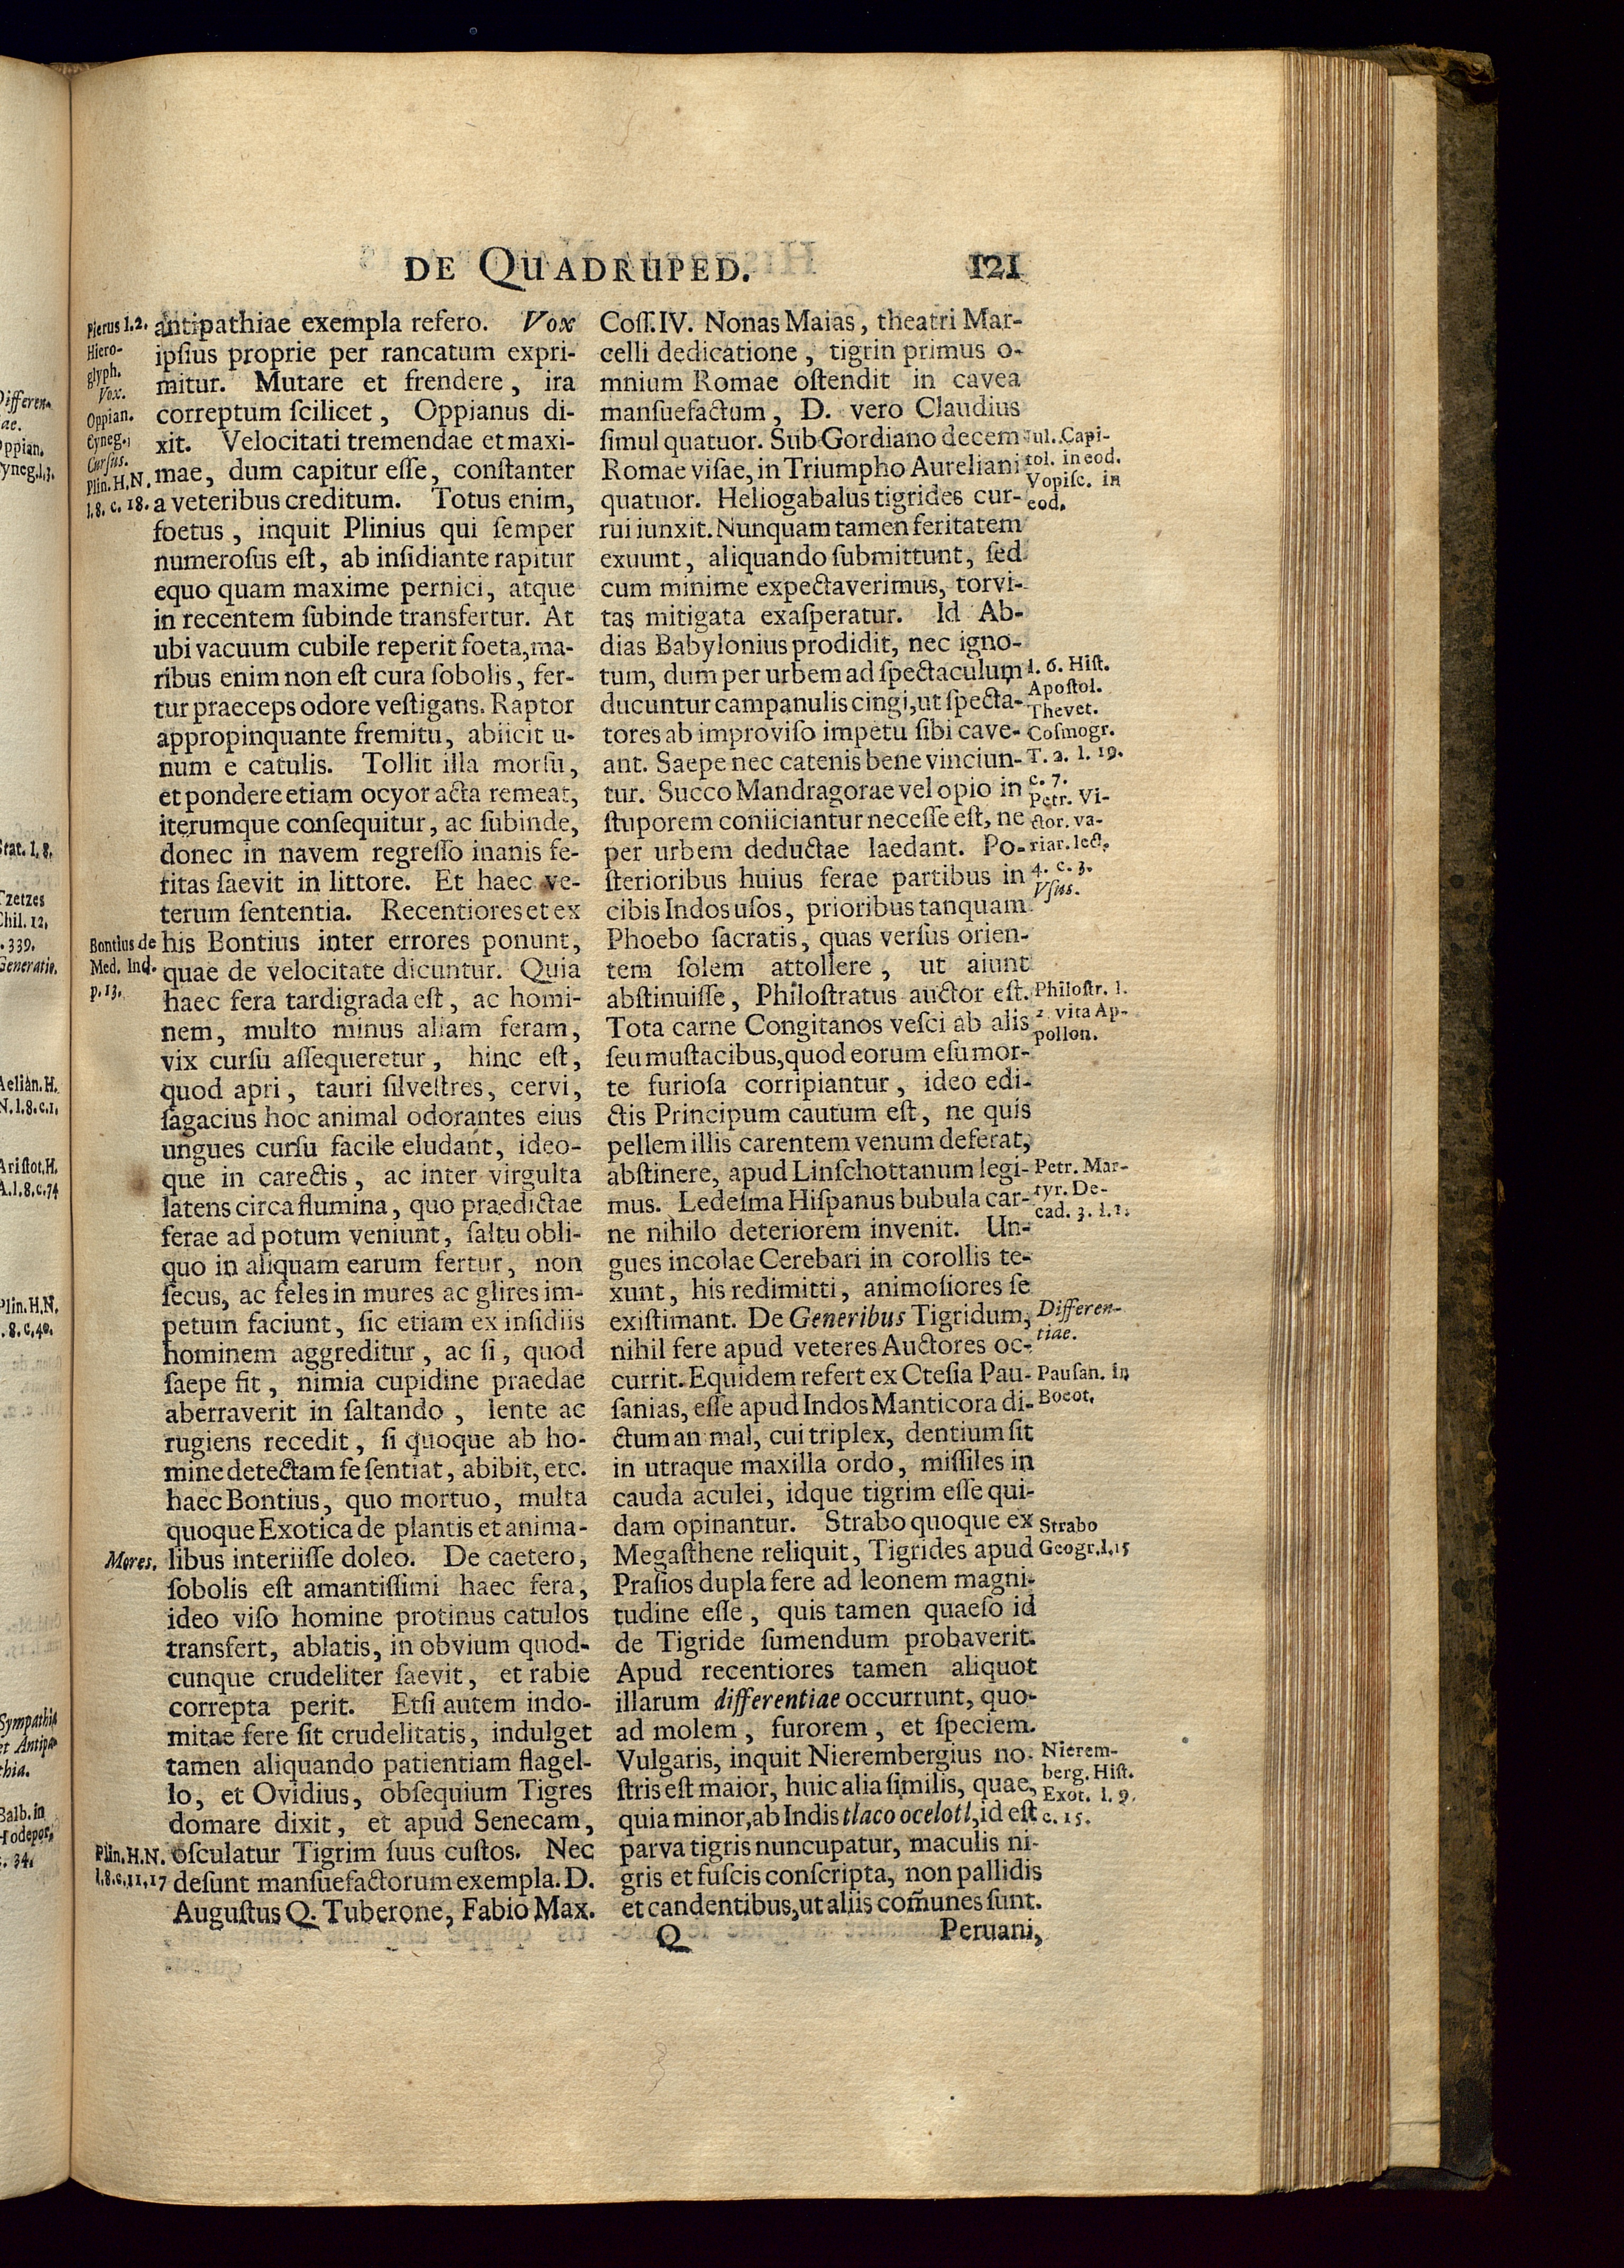 DE QUADRUPED. 121
Pierus l. 2.
Hiero-
glyph.
Vox.
Oppian.
Cyneg.
Cursus.
Plin. H. N.
l. 8. c. 18.
antipathiae exempla refero. Vox
ipſius proprie per rancatum expri-
mitur. Mutare et frendere, ira
correptum ſcilicet, Oppianus di-
xit. Velocitati tremendae et maxi-
mae, dum capitur eſſe, conſtanter
a veteribus creditum. Totus enim,
foetus, inquit Plinius qui ſemper
numeroſus eſt, ab inſidiante rapitur
equo quam maxime pernici, atque
in recentem ſubinde transfertur. At
ubi vacuum cubile reperit foeta, ma-
ribus enim non eſt cura ſobolis, fer-
tur praeceps odore veſtigans. Raptor
appropinquante fremitu, abiicit u-
num e catulis. Tollit illa morſu,
et pondere etiam ocyor acta remeat,
iterumque conſequitur, ac ſubinde,
donec in navem regreſſo inanis fe-
ritas ſaevit in littore. Et haec ve-
terum ſententia. Recentiores et ex
Bontius de
Med. Ind.
p. 13.
his Bontius inter errores ponunt,
quae de velocitate dicuntur. Quia
haec fera tardigrada eſt, ac homi-
nem, multo minus aliam feram,
vix curſu aſſequeretur, hinc eſt,
quod apri, tauri ſilveſtres, cervi,
ſagacius hoc animal odorantes eius
ungues curſu facile eludant, ideo-
que in carectis, ac inter virgulta
latens circa flumina, quo praedictae
ferae ad potum veniunt, ſaltu obli-
quo in aliquam earum fertur, non
ſecus, ac feles in mures ac glires im-
petum faciunt, ſic etiam ex inſidiis
hominem aggreditur, ac ſi, quod
ſaepe fit, nimia cupidine praedae
aberraverit in ſaltando, lente ac
rugiens recedit, ſi quoque ab ho-
mine detectam ſe ſentiat, abibit, etc.
haec Bontius, quo mortuo, multa
quoque Exotica de plantis et anima-
Mores.
libus interiiſſe doleo. De caetero,
ſobolis eſt amantiſſimi haec fera,
ideo viſo homine protinus catulos
transfert, ablatis, in obvium quod-
cunque crudeliter ſaevit, et rabie
correpta perit. Etſi autem indo-
mitae fere ſit crudelitatis, indulget
tamen aliquando patientiam flagel-
lo, et Ovidius, obſequium Tigres
domare dixit, et apud Senecam,
Plin. H. N.
l. 8. c. 11, 17
oſculatur Tigrim ſuus cuſtos. Nec
deſunt manſuefactorum exempla. D.
Auguſtus Q. Tuberone, Fabio Max.
Coſſ. IV. Nonas Maias, theatri Mar-
celli dedicatione, tigrin primus o-
mnium Romae oſtendit in cavea
manſuefactum, D. vero Claudius
ſimul quatuor. Sub Gordiano decem
Romae viſae, in Triumpho Aureliani
quatuor. Heliogabalus tigrides cur-
rui iunxit. Nunquam tamen feritatem
exuunt, aliquando ſubmittunt, ſed
cum minime expectaverimus, torvi-
tas mitigata exaſperatur. Id Ab-
dias Babylonius prodidit, nec igno-
tum, dum per urbem ad ſpectaculum
ducuntur campanulis cingi, ut ſpecta-
tores ab improviſo impetu ſibi cave-
ant. Saepe nec catenis bene vinciun-
tur. Succo Mandragorae vel opio in
ſtuporem coniiciantur neceſſe eſt, ne
per urbem deductae laedant. Po-
ſterioribus huius ferae partibus in
cibis Indos uſos, prioribus tanquam
Phoebo ſacratis, quas verſus orien-
tem ſolem attollere, ut aiunt
abſtinuiſſe, Philoſtratus auctor eſt.
Tota carne Congitanos veſci ab aliis
ſeu muſtacibus, quod eorum eſu mor-
te furioſa corripiantur, ideo edi-
ctis Principum cautum eſt, ne quis
pellem illis carentem venum deferat,
abſtinere, apud Linſchottanum legi-
mus. Ledeſma Hiſpanus bubula car-
ne nihilo deteriorem invenit. Un-
gues incolae Cerebari in corollis te-
xunt, his redimitti, animoſiores ſe
exiſtimant. De Generibus Tigridum,
nihil fere apud veteres Auctores oc-
currit. Equidem refert ex Cteſia Pau-
ſanias, eſſe apud Indos Manticora di-
ctum an mal, cui triplex, dentium ſit
in utraque maxilla ordo, miſſiles in
cauda aculei, idque tigrim eſſe qui-
dam opinantur. Strabo quoque ex
Megaſthene reliquit, Tigrides apud
Praſios dupla fere ad leonem magni-
tudine eſſe, quis tamen quaeſo id
de Tigride ſumendum probaverit.
Apud recentiores tamen aliquot
illarum differentiae occurrunt, quo-
ad molem, furorem, et ſpeciem.
Vulgaris, inquit Nierembergius no-
ſtris eſt maior, huic alia ſimilis, quae,
quia minor, ab Indis tlaco ocelotl, id eſt
parva tigris nuncupatur, maculis ni-
gris et fuſcis conſcripta, non pallidis
et candentibus, ut aliis com̃unes ſunt.
Q Peruani,
Jul. Capi-
tol. in eod.
Vopiſc. in
eod.
l. 6. Hiſt.
Apoſtol.
Thevet.
Coſmogr.
T. 2. l. 19.
c. 7.
Petr. Vi-
ctor. va-
riar. lect.
4. c. 3.
Vſus.
Philoſtr. l.
2. vita Ap-
pollon.
Petr. Mar-
tyr. De-
cad. 3. l. 1.
Differen-
tiae.
Pauſan. in
Boeot.
Strabo
Geogr. l. 15
Nierem-
berg. Hiſt.
Exot. l. 9.
c. 15.
Differen-
ae.
Oppian.
Cyneg. l. 3.
Stat. l. 8.
Tzetzes
Chil. 12.
. 339.
Generatio.
Aelian. H.
N. l. 8. c. 1.
Ariſtot. H.
A. l. 8. c. 74
Plin. H. N.
. 8. c. 40.
Sympathia
et Antipa-
thia.
Balb. in
Hodepor.
c. 34.